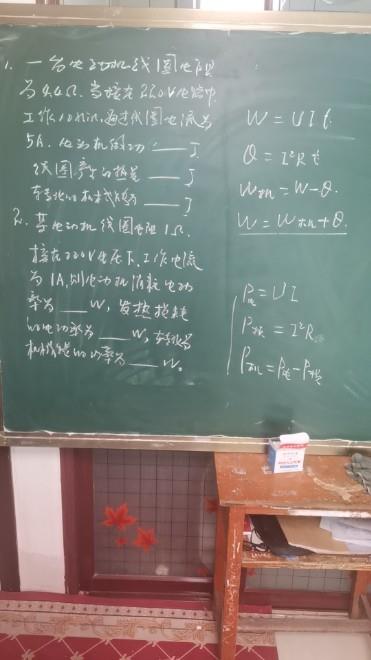 1. 一台电动机线圈电阻
为4.4Ω. 当接在220V电路中
工作10min, 通过线圈电流为
5A. 电动机做功 ___ J
线圈产生的热量 ___ J
转化的机械能为 ___ J
2. 某电动机线圈电阻1Ω.
接在220V电压下, 工作电流
为1A, 则电动机消耗电功
率为 ___ W, 发热损耗
的电功率为 ___ W, 转化为
机械能的功率为 ___ W。
W = UIt
Q = I²Rt
W机 = W - Q.
W = W机 + Q.
P电 = UI
P热 = I²R
P机 = P电 - P热